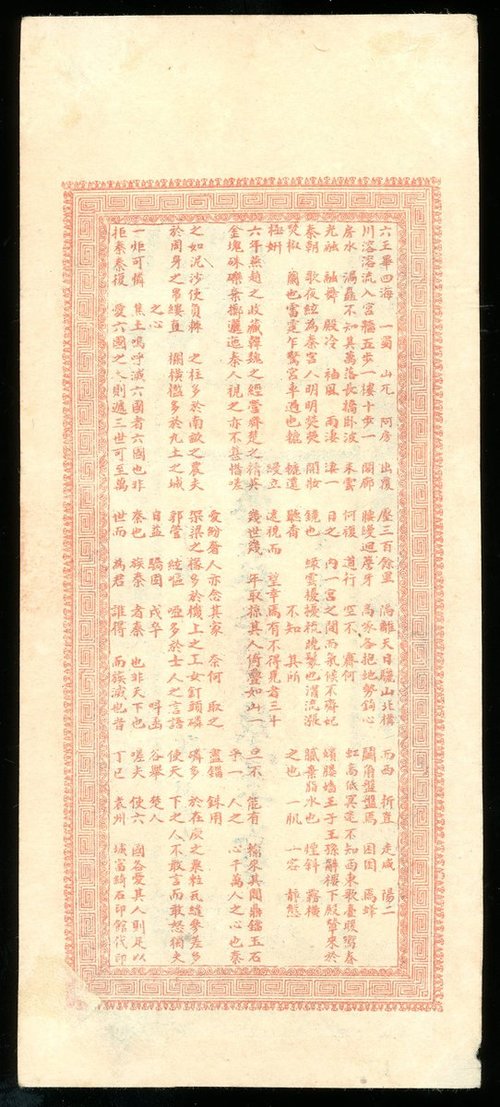 六王畢四海 一蜀 山兀 阿房 出覆 壓三百餘里 隔離天日驪山北構 而西 折直 走咸 陽二
川溶溶流入宮牆五步一樓十步一 閣廊 腰縵迴簷牙 高啄各抱地勢鉤心 鬭角盤盤焉 囷囷 焉蜂
房水 渦矗不知其萬落長橋卧波 未雲 何復道行 空不 霽何 虹高低冥迷不知西東歌臺暖響春
光融 融舞 殿冷 袖風 雨淒 淒一 日之 內一宮之間而氣候不齊妃 嬪媵嬙王子王孫辭樓下殿輦來於
秦朝 歌夜絃為秦宮人明明熒熒 開妝 鏡也 綠雲擾擾梳曉鬟也渭流漲 膩棄脂水也 煙斜 霧橫
焚椒 蘭也雷霆乍驚宮車過也轆 轆遠 聽杳 不知 其所 之也 一肌 一容 靜態
極妍 縵立 遠視而 望幸焉有不得見者三十
六年燕趙之收藏韓魏之經營齊楚之精英 幾世幾 年取掠其人倚疊如山一 旦不 能有 輸來其間鼎鐺玉石
金塊珠礫棄擲邐迤秦人視之亦不甚惜嗟 乎一 人之 心千萬人之心也秦
愛紛奢人亦念其家 奈何 取之 盡錙 銖用
之如泥沙使負棟 之柱多於南畝之農夫 架梁之椽多於機上之工女釘頭磷 磷多 於在庾之粟粒瓦縫參差多
於周身之帛縷直 欄橫檻多於九土之城 郭管 絃嘔 啞多於士人之言語 使天 下之人不敢言而敢怒獨夫
之心 日益 驕固 戍卒 叫函 谷舉 楚人
一炬可憐 焦土嗚呼滅六國者六國也非 秦也 族秦 者秦 也非天下也 嗟夫 使六 國各愛其人則足以
拒秦秦復 愛六國之 則遞三世可至萬 世而 為君 誰得 而族滅也昔 丁巳 袁州 城富綺石印館代印